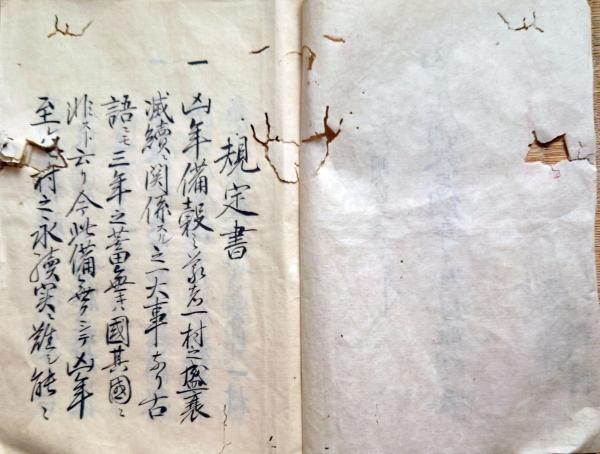 規定書
一
凶年備穀之義者一村之盛衰
滅續ニ関係スル之一大事なり古
語ニモ三年之蓄無ハ國其國ニ
非スト云り今此備無クシテ凶年
至ハ村之永續実ニ難シ能々